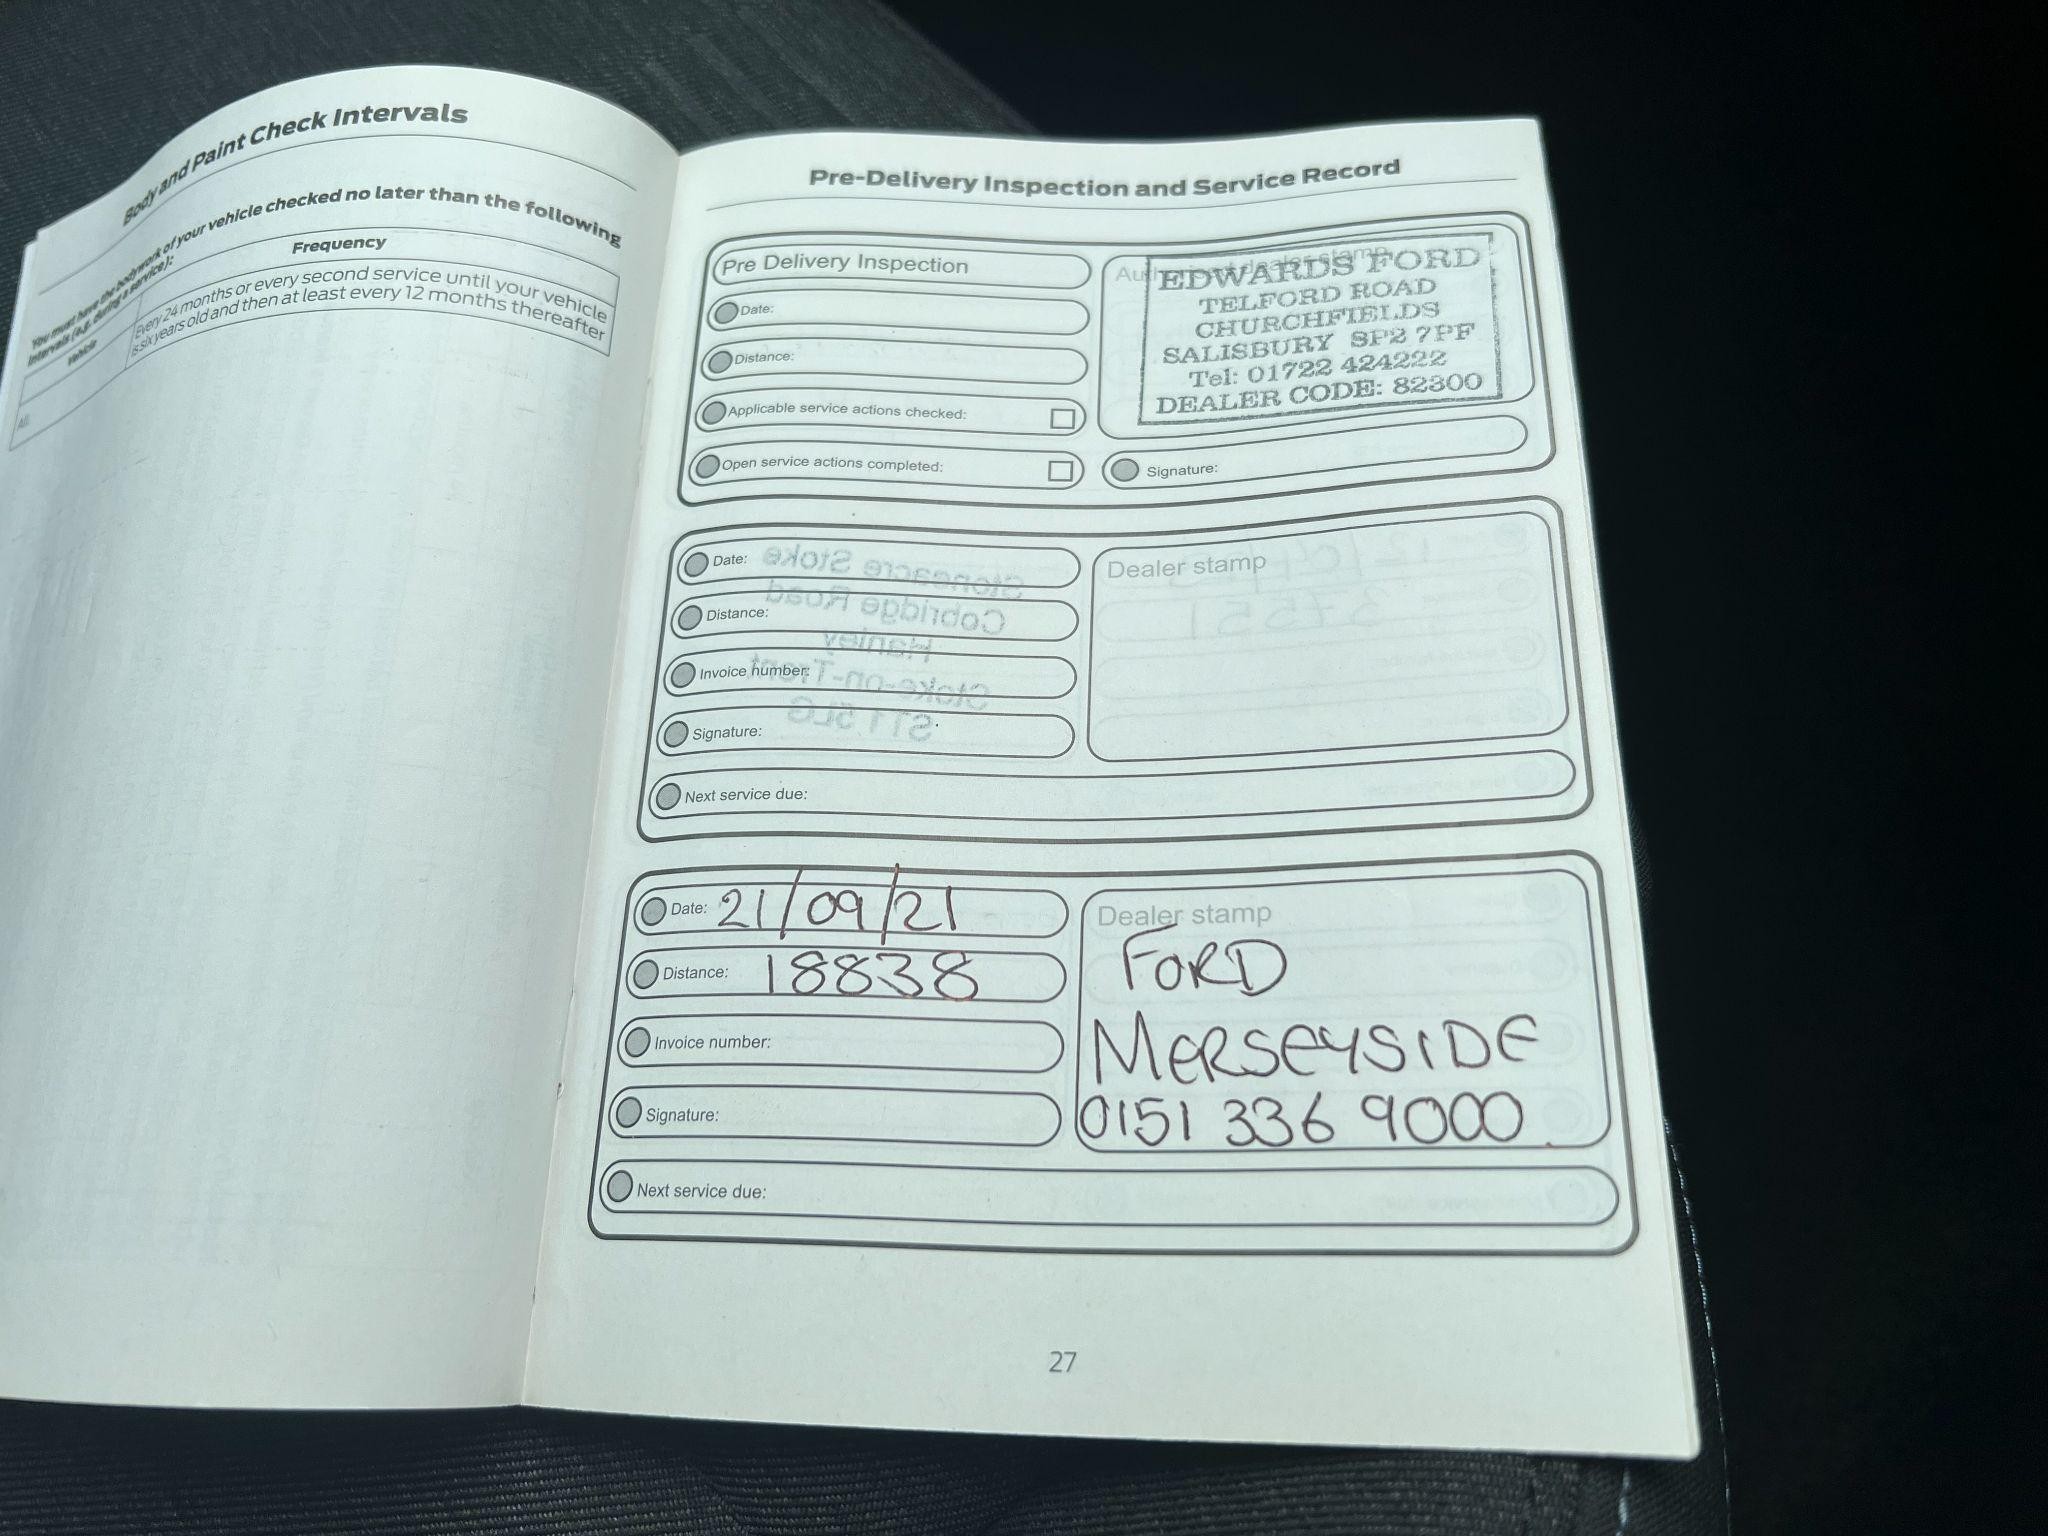 Body and Paint Check Intervals
You must have the bodywork of your vehicle checked no later than the following
intervals (e.g. during a service):
Vehicle
Frequency
All.
Every 24 months or every second service until your vehicle
is six years old and then at least every 12 months thereafter
Pre-Delivery Inspection and Service Record
Pre Delivery Inspection
Date:
Distance:
Applicable service actions checked:
Open service actions completed:
EDWARDS FORD
TELFORD ROAD
CHURCHFIELDS
SALISBURY SP2 7PF
Tel: 01722 424222
DEALER CODE: 82300
Signature:
Date:
Distance:
Invoice number:
Signature:
Next service due:
Dealer stamp
Stoneacre Stoke
Cobridge Road
Hanley
Stoke-on-Trent
ST1 5LG
Date: 21/09/21
Distance: 18838
Invoice number:
Signature:
Next service due:
Dealer stamp
FORD
MERSEYSIDE
0151 336 9000
27